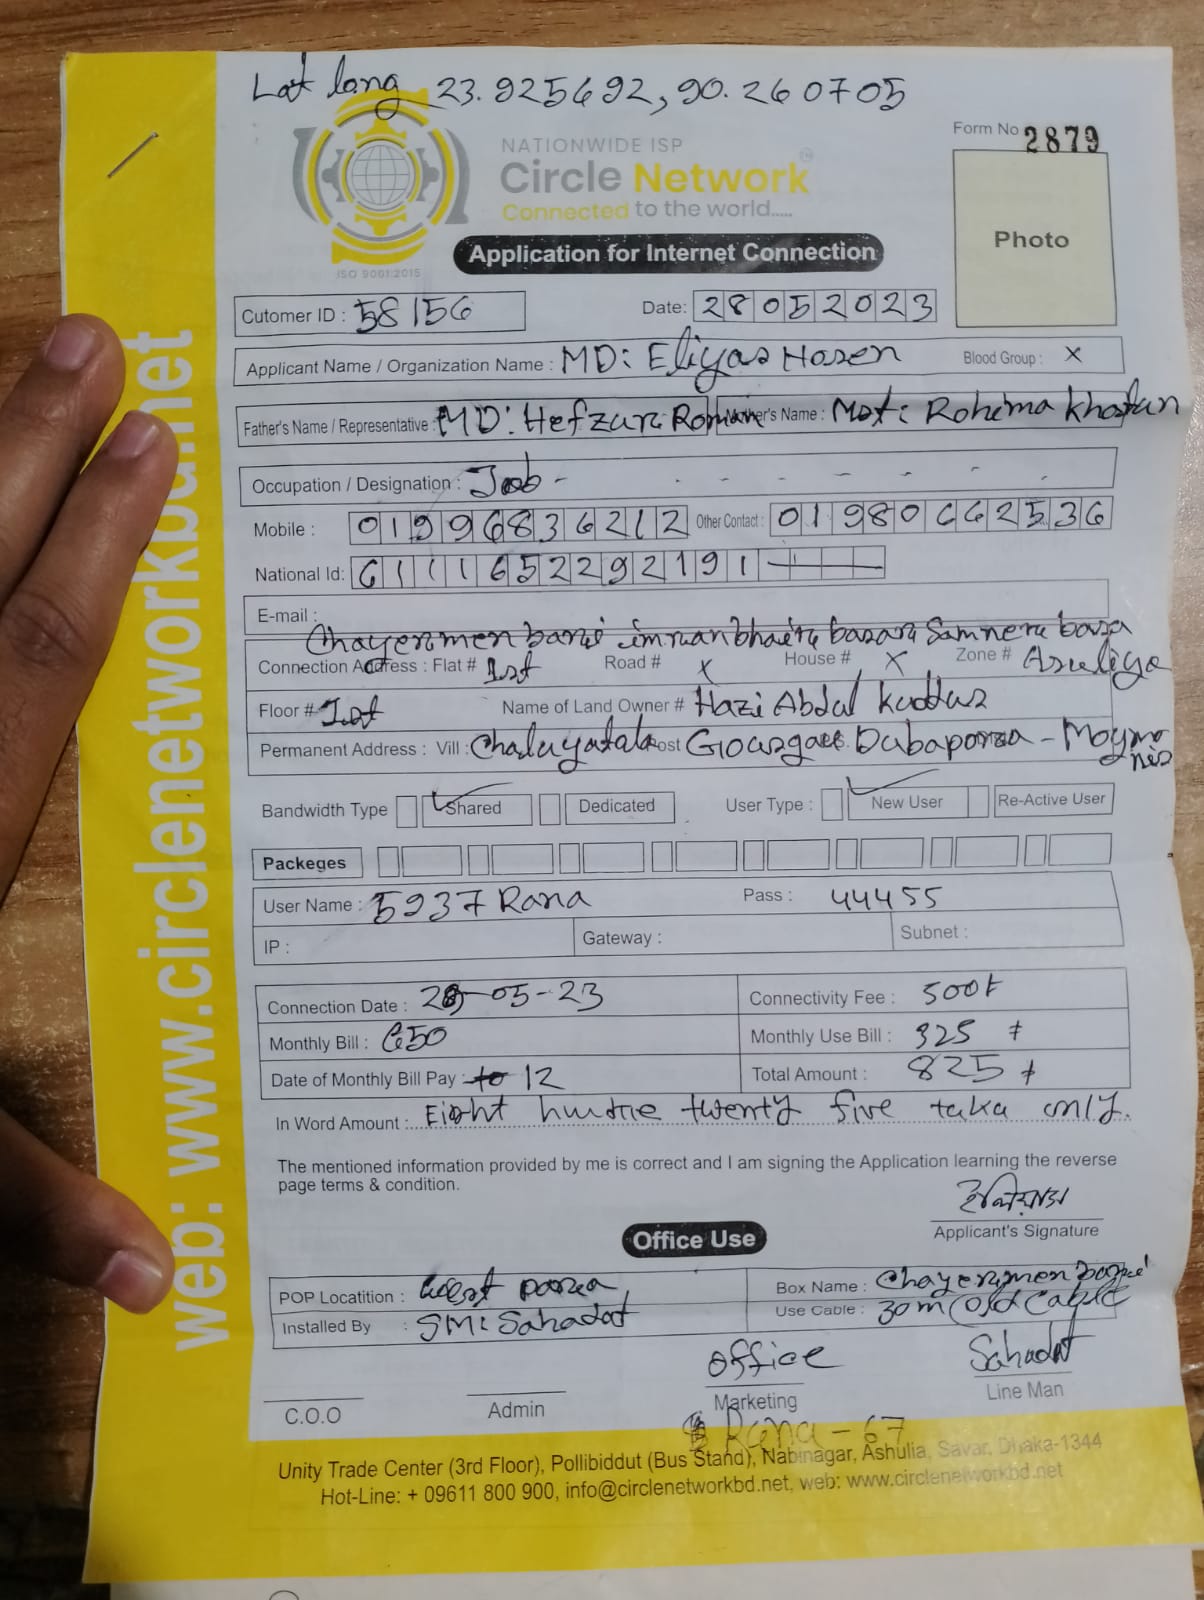 Lat long 23.925692, 90.260705
Form No 2879
NATIONWIDE ISP
Circle Network
Connected to the world.....
ISO 9001:2015
Photo
Application for Internet Connection
Cutomer ID : 58156 Date: 28052023
Applicant Name / Organization Name : MD: Eliyas Hosen Blood Group : X
Father's Name / Representative : MD: Hefzur Roman Mother's Name : Mst: Rohima Khatun
Occupation / Designation : Job -
Mobile : 01996836212 Other Contact : 01980662536
National Id: 6111652292191
E-mail :
Chayermen bari imran bhair basar Samner basa
Connection Address : Flat # 1st Road # X House # X Zone # Asuliya
Floor # 1st Name of Land Owner # Hazi Abdul Kuddus
Permanent Address : Vill : Post
Bandwidth Type Shared Dedicated User Type : New User Re-Active User
Packeges
User Name : 5937 Rana Pass : 44455
IP : Gateway : Subnet :
Connection Date : 28-05-23 Connectivity Fee : 500t
Monthly Bill : 650 Monthly Use Bill : 325 t
Date of Monthly Bill Pay : to 12 Total Amount : 825 t
In Word Amount : Eight hundre twenty five taka only.
The mentioned information provided by me is correct and I am signing the Application learning the reverse
page terms & condition.
ইলিয়াস
Applicant's Signature
Office Use
POP Locatition : West parra Box Name : Chayermen bari
Installed By : SM: Sahadat Use Cable : 30m (old cable
Office Sahadat
C.O.O Admin Marketing Line Man
Rana - 67
Unity Trade Center (3rd Floor), Pollibiddut (Bus Stand), Nabinagar, Ashulia, Savar, Dhaka-1344
Hot-Line: + 09611 800 900, info@circlenetworkbd.net, web: www.circlenetworkbd.net
web: www.circlenetworkbd.net